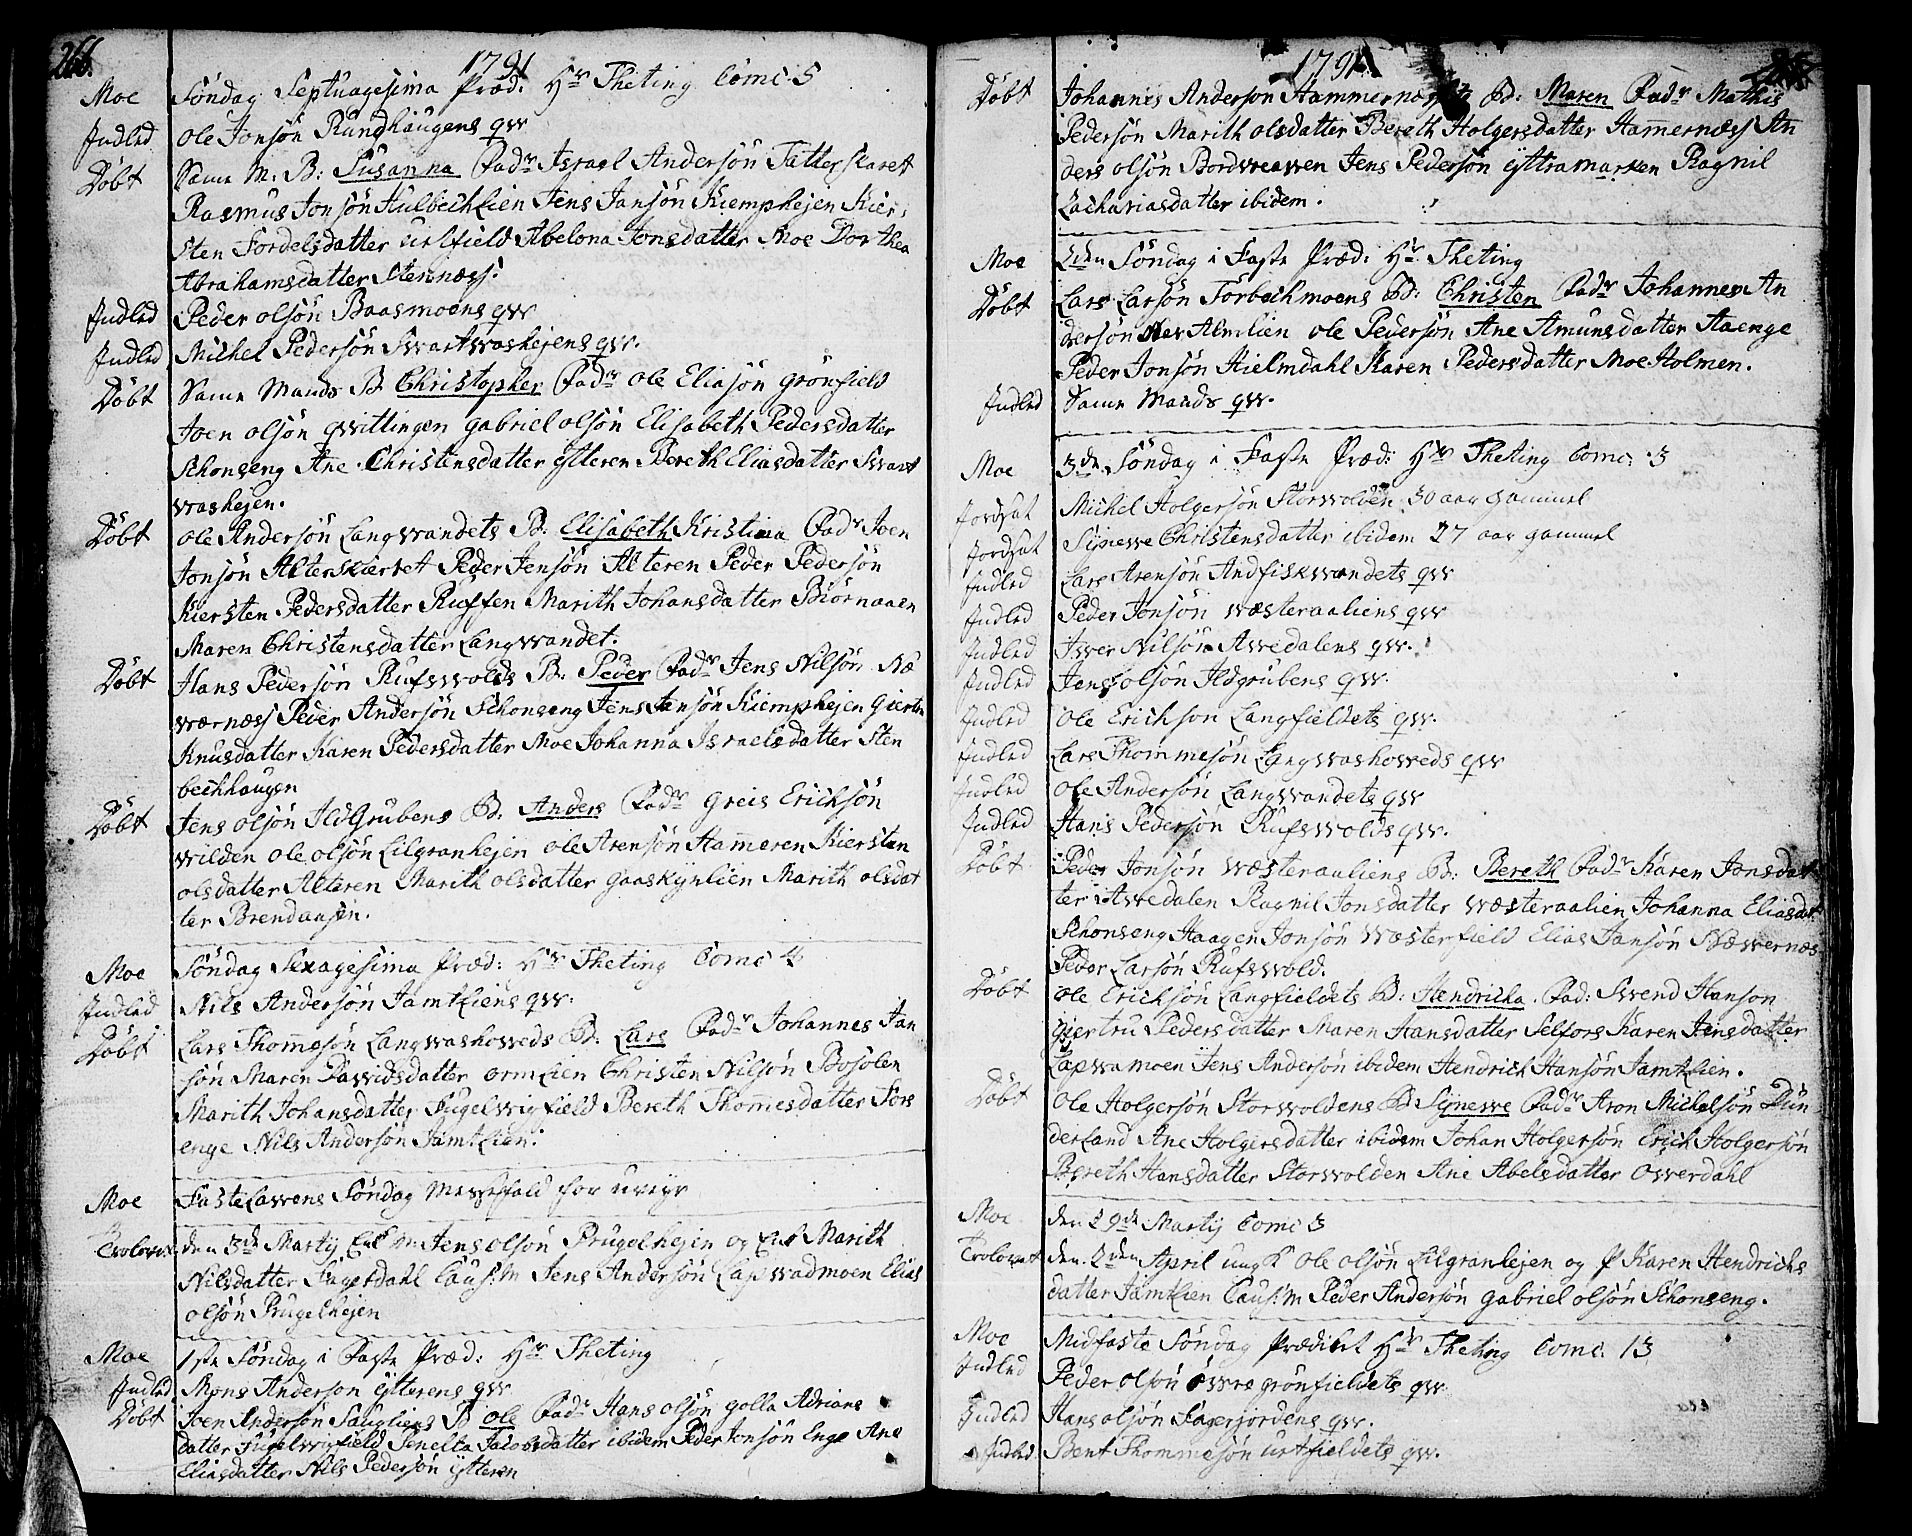 266.
1791
Moe Söndag Septuagesima Præd: Hr Theting Comc: 5
Indled Ole Jonsön Rundhaugens qvv
Döbt Same M. B: Susanna Fadr Israel Andersön Tatterskaret
Rasmus Jonsön Hulbechlien Jens Jansön Kiemphejen Kier,
sten Fordelsdatter Urlfield Abelona Jonsdatter Moe Dorthea
Abrahamsdatter Stennæss.
Indled Peder olsön Baasmoens qvv
Indled Michel Pedersön Svartvashejens qvv.
Döbt Same Mands B Christopher Fadr Ole Eliasön grönfield
Joen olsön qvittingen gabriel olsön Elisabeth Pedersdatter
Schonseng Ane Christensdatter Ytteren Bereth Eliasdatter Svart
vashejen.
Döbt Ole Andersön Langvandets B: Elisabeth Kristina Fadr Joen
Jonsön Alterskarvet Peder Jensön Alteren Peder Pedersön
Kiersten Pedersdatter Ruffen Marith Johansdatter Biörnaaen
Maren Christensdatter Langvandet.
Döbt Hans Pedersön Rufsvolds B: Peder Fadr Jens Nilsön Næ
værnæss Peder Andersön Schonseng Jens Jansön Kiemphejen Giertru
Knusdatter Karen Pedersdatter Moe Johanna Israelsdatter Sten
bechhaugen
Döbt Jens olsön Ildgrubens B: Anders Fadr Greis Erichsön
vilden Ole olsön Lilgranhejen Ole Arensön Hameren Kiersten
olsdatter Alteren Marith olsdatter gaaskynlien Marith olsdat
ter Brendaasen.
Moe Söndag Sexagesima Præd: Hr Theting Comc 4
Indled Nils Andersön Jamtliens qvv.
Döbt Lars Thomesön Langvashoveds B: Lars Fadr Johannes Jan
sön Maren Davidsdatter Ormlien Christen Nilsön Bosolen
Marith Johansdatter Fugelvigfield Bereth Thomesdatter Fors
enge Nils Andersön Jamtlien.
Moe Fastelavens Söndag Messefald for uveyr
Trolovet den 3de Martij Enk M: Jens olsön Prugelhejen og Enk Marith
Nilsdatter Fagerdahl Caus: M Jens Andersön Lapvadmoen Elias
olsön Prugelhejen
Moe 1ste Söndag i Faste Præd: Hr Theting
Indled Mons Anderson Ytterens qvv
Döbt Joen Andersön Saugliens B Ole Fadr Hans olsön golla Adrians
datter Fugelvigfield Penelta Jacobsdatter ibidem Peder Jonsön Enge Ane
Eliasdatter Nils Pedersön Ytteren
1791
Döbt Johannes Anderson Hammernæss B: Maren Fadr Mathis
Pedersön Marith olsdatter Bereth Holgersdatter Hamernæss An
ders olsön Bordveaven Jens Pedersön Yttramarken Ragnil
Zachariasdatter ibidem.
Moe 2den Söndag i Faste Præd: Hr. Theting
Döbt Lars Larsön Törbechmoens B: Christen Fadr Johannes An
dersön Almlien Ole Pedersön Ane Amunsdatter Aaenge
Peder Jonsön Hielmdahl Karen Pedersdatter Moe Holmen.
Indled Same Mands qvv.
Moe 3de Söndag i Faste Præd: Hr Theting Comc: 3
Jordsat Michel Holgersön Storvolden 30 aar gammel
Jordsat Synesve Christensdatter ibidem 27 aar gammel
Indled Lars Arensön Andfiskvandets qvv
Indled Peder Jonsön væsteraaliens qvv
Indled Iver Nilsön Avedalens qvv.
Indled Jens olsön Ildgrubens qvv.
Indled Ole Erichson Langfieldets qvv.
Indled Lars Thommesön Langvashoveds qvv
Indled Ole Andersön Langvandets qvv
Indled Hans Pedersön Rufsvolds qvv.
Döbt Peder Jonsön væsteraaliens B: Bereth Fadr Karen Jonsdat
ter i Avedalen Ragnil Jonsdatter væsteraalien Johanna Eliasdat
Schonseng Haagen Jonsön Væsterfield Elias Jansön Nævernæs
Peder Larsön Rufsvold.
Döbt Ole Erichsön Langfieldets B: Hendricka Fad: Svend Hanson
giertru Pedersdatter Maren Hansdatter Selfors Karen Jensdatter
Lapvamoen Jens Andersön ibidem Hendrich Hansön Jamtlien.
Döbt Ole Holgersön Storvoldens B Synesve Fadr Aron Michelsön Dun
derland Ane Holgersdatter ibidem Johan Holgersön Erich Holgersön
Bereth Hansdatter Storvolden Ane Abelsdatter Overdahl
Moe den 29de Martij Comc 3
Trolovet den 2den April ungK Ole olsön Lilgranhejen og P Karen Hendrichs
datter Jamtlien Caus: M Peder Andersön gabriel olsön Schonseng.
Moe Midfaste Söndag Prædiket Hr Theting Comc. 13
Indled Peder olsön övre grönfieldets qvv
Indled Hans olsön Fagerjordens qvv.
Indled Bent Thommesön urtfieldets qvv.